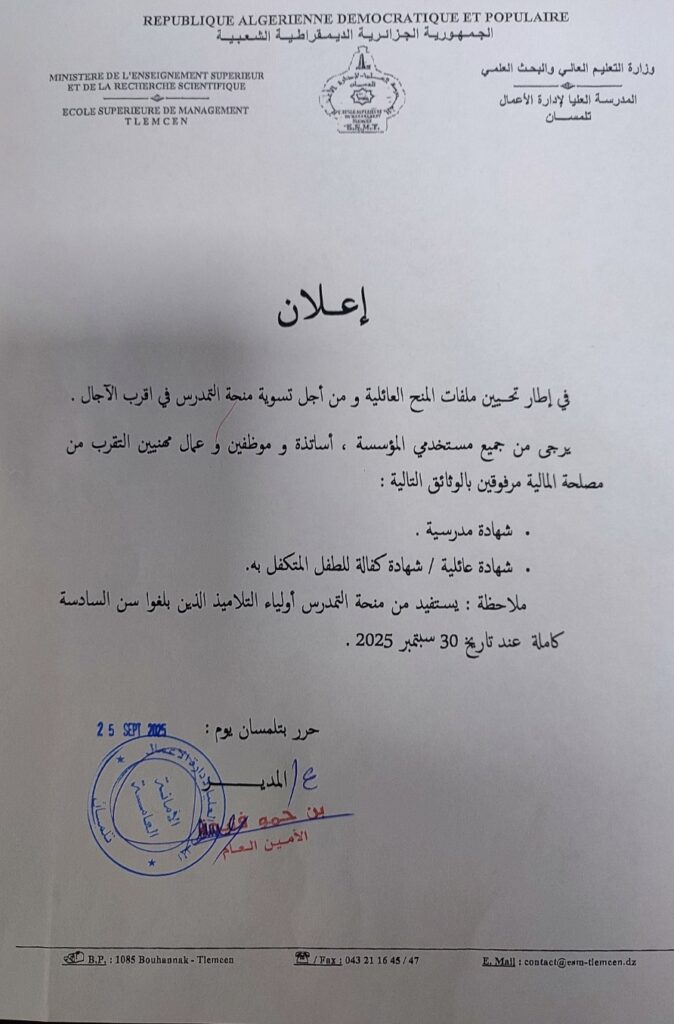 REPUBLIQUE ALGERIENNE DEMOCRATIQUE ET POPULAIRE
الجمهورية الجزائرية الديمقراطية الشعبية
MINISTERE DE L'ENSEIGNEMENT SUPERIEUR
ET DE LA RECHERCHE SCIENTIFIQUE
ECOLE SUPERIEURE DE MANAGEMENT
TLEMCEN
وزارة التعليم العالي والبحث العلمي
المدرسة العليا لإدارة الأعمال
تلمسان
ECOLE SUPERIEURE
DE MANAGEMENT
TLEMCEN
E.S.M.T.
إعلان
في إطار تحيين ملفات المنح العائلية و من أجل تسوية منحة التمدرس في اقرب الآجال .
يرجى من جميع مستخدمي المؤسسة ، أساتذة و موظفين و عمال مهنيين التقرب من
مصلحة المالية مرفوقين بالوثائق التالية :
• شهادة مدرسية .
• شهادة عائلية / شهادة كفالة للطفل المتكفل به.
ملاحظة : يستفيد من منحة التمدرس أولياء التلاميذ الذين بلغوا سن السادسة
كاملة عند تاريخ 30 سبتمبر 2025 .
حرر بتلمسان يوم : 25 SEPT 2025
ع/ المديـر
بن حمو
الأمين العام
الأمانة
العامة
تلمسان
B.P. : 1085 Bouhannak - Tlemcen
/ Fax : 043 21 16 45 / 47
E. Mail : contact@esm-tlemcen.dz